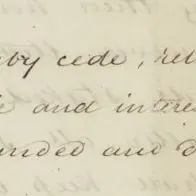 by cede, rel
and interes
unded and d